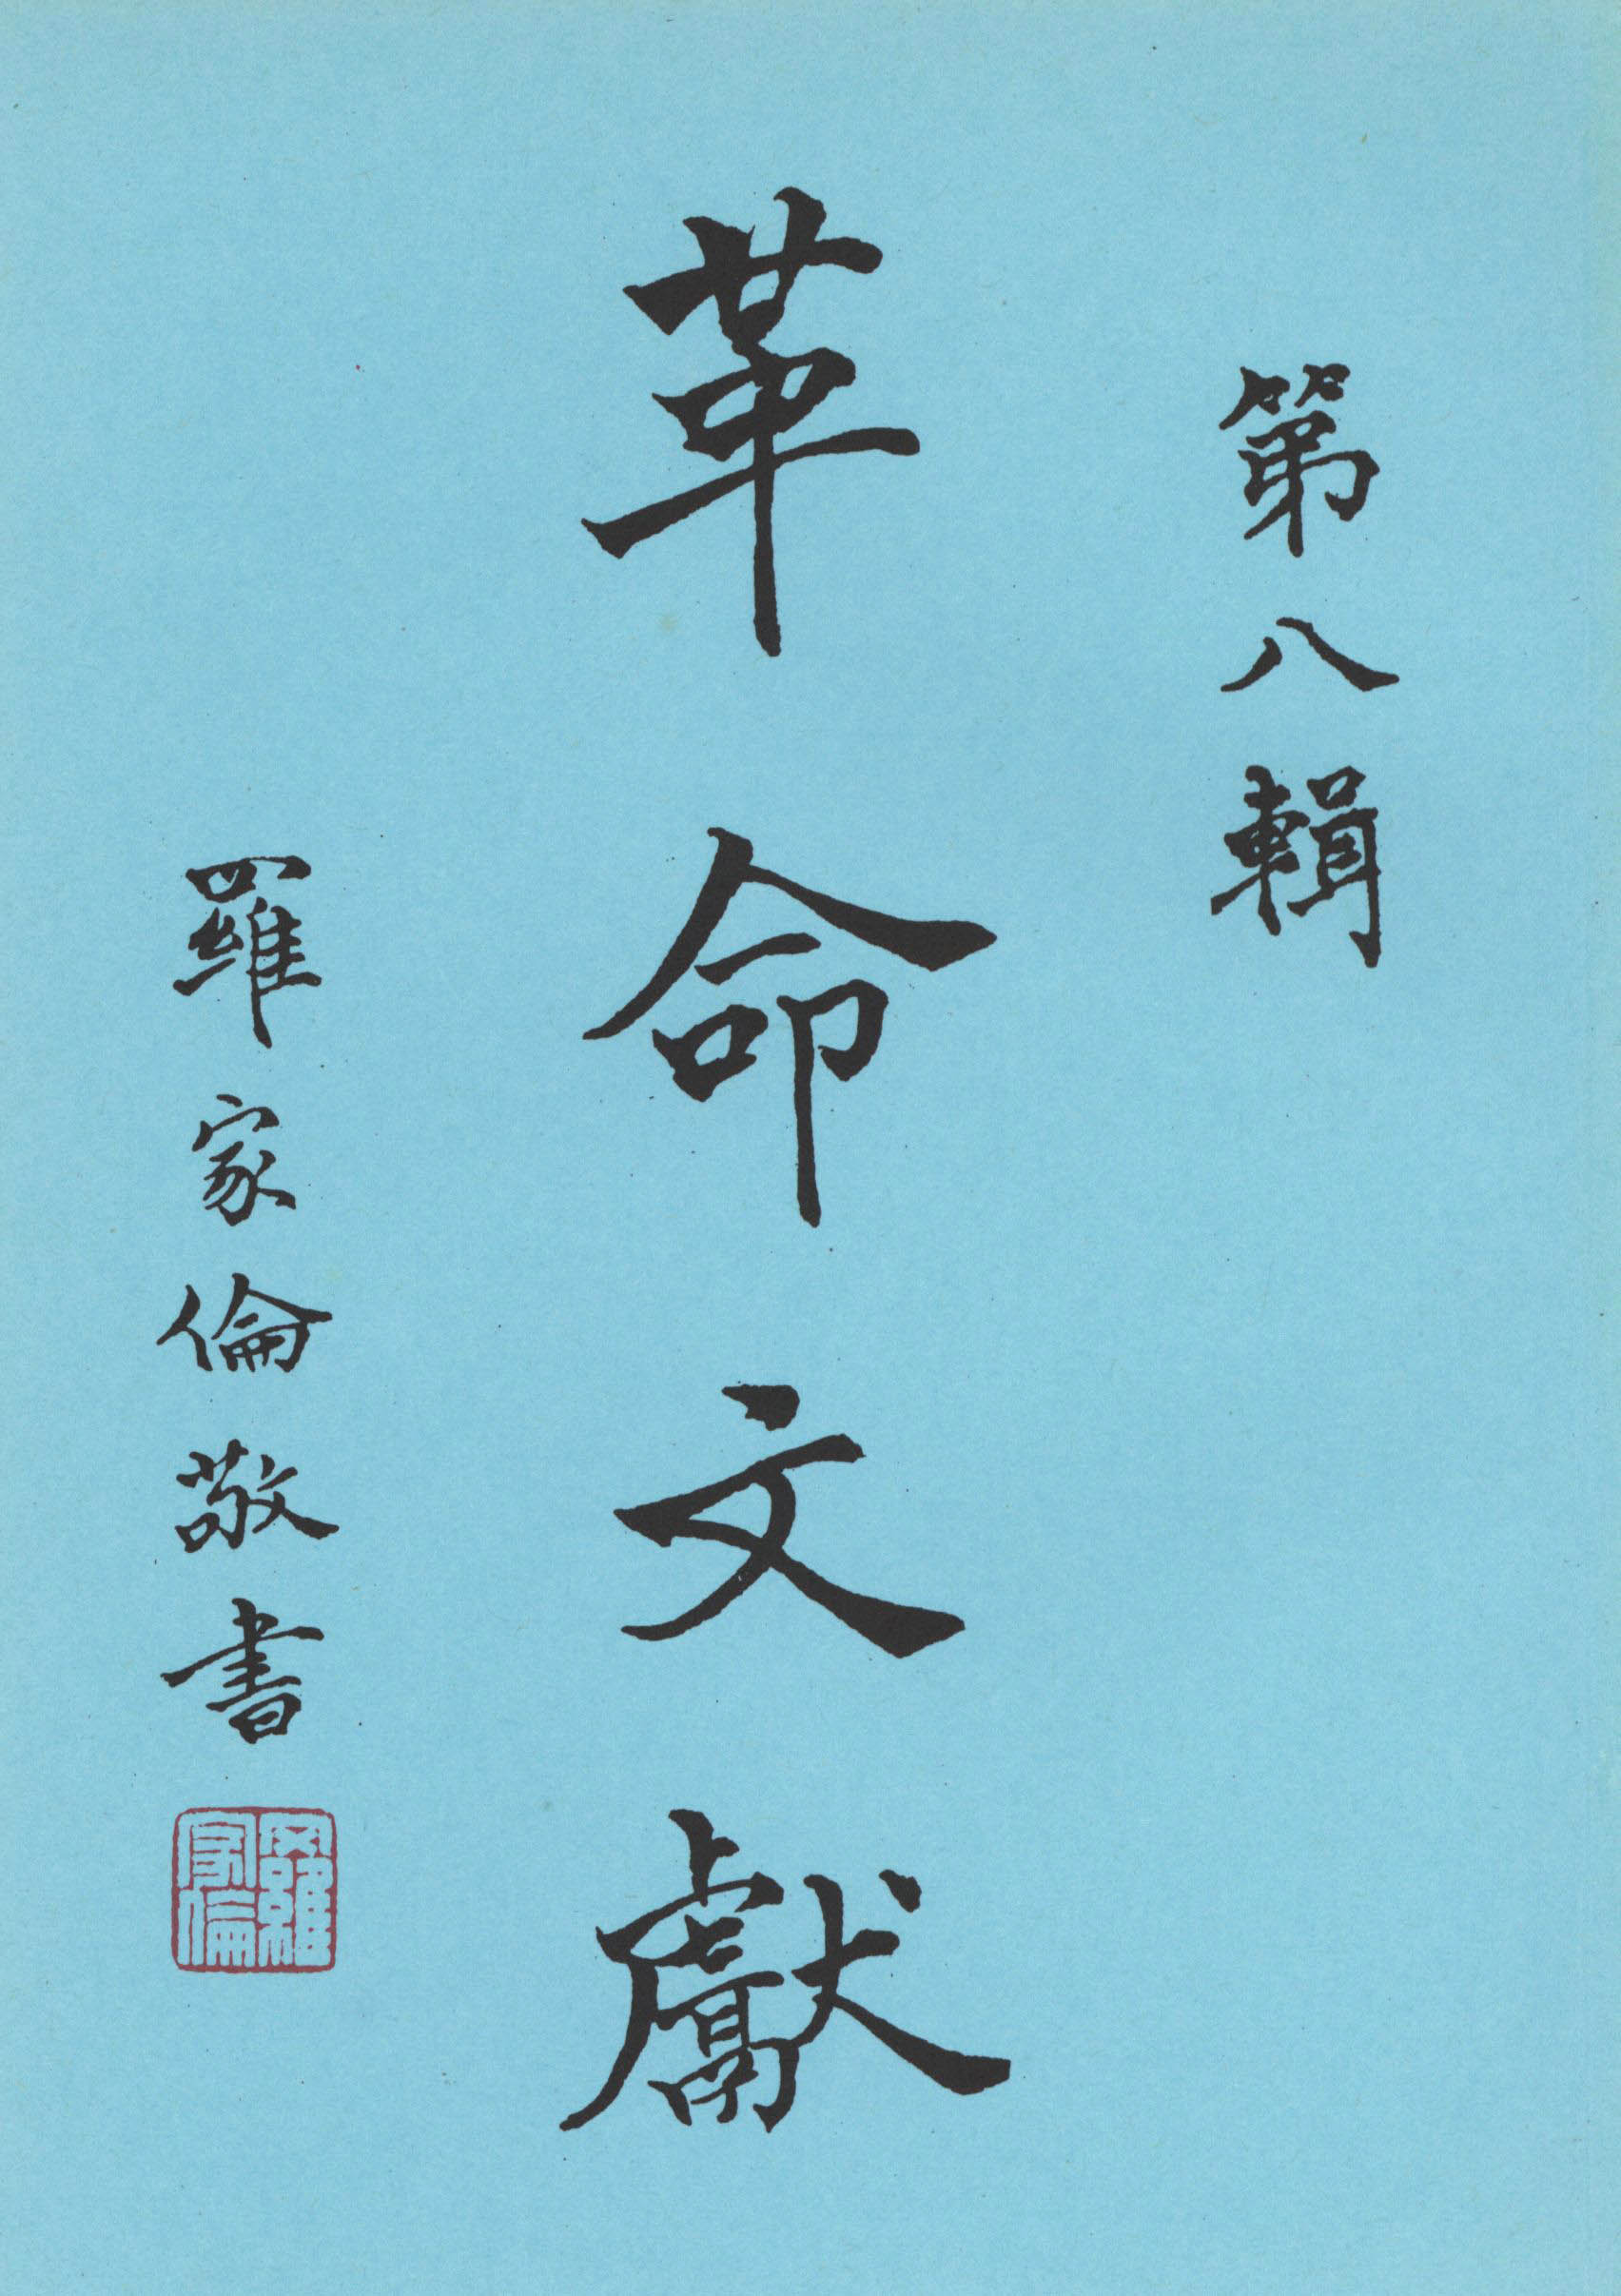 第八輯
革命文獻
羅家倫敬書
羅家倫